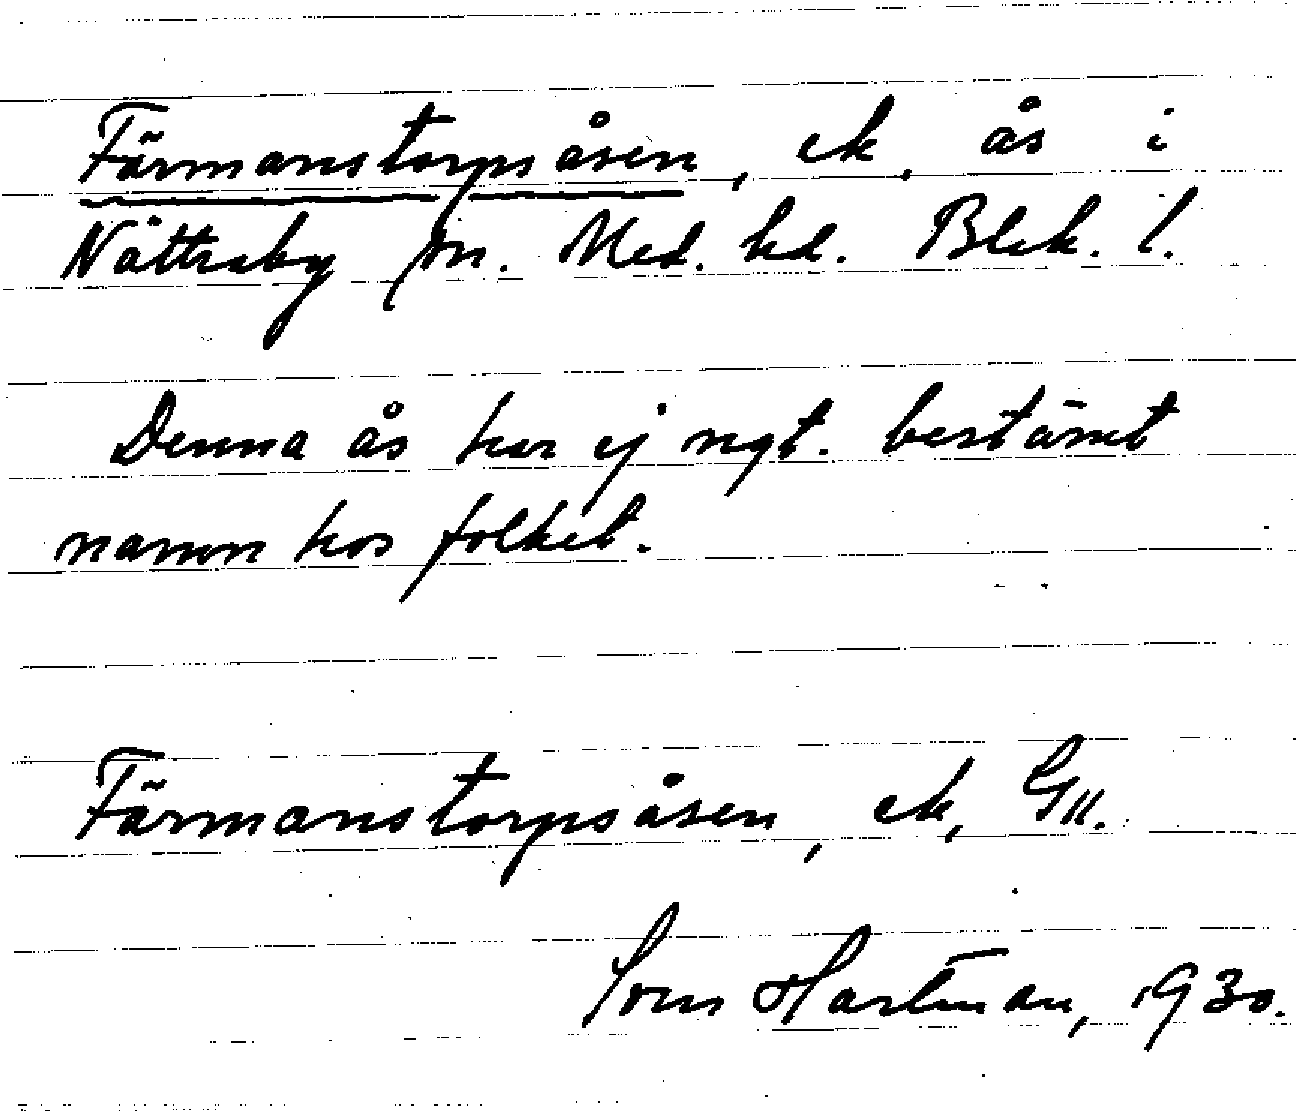 Färmanstorpsåsen, ek, ås i
Nättraby sn. Med. hd. Blek. l.
Denna ås har ej ngt. bestämt
namn hos folket.
Färmanstorpsåsen, ek, GK.
Hartman, 1930.